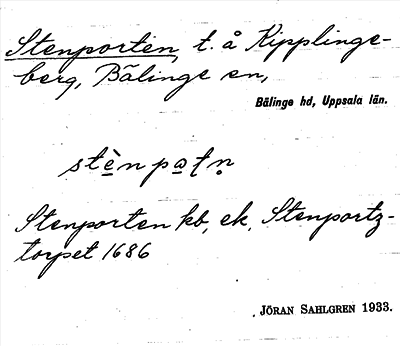 Stenporten, t. å Kipplinge-
berg, Bälinge sn,
Bälinge hd, Uppsala län.
stènpaʈn̥
Stenporten kb, ek. Stenportz-
torpet 1686
JÖRAN SAHLGREN 1933.